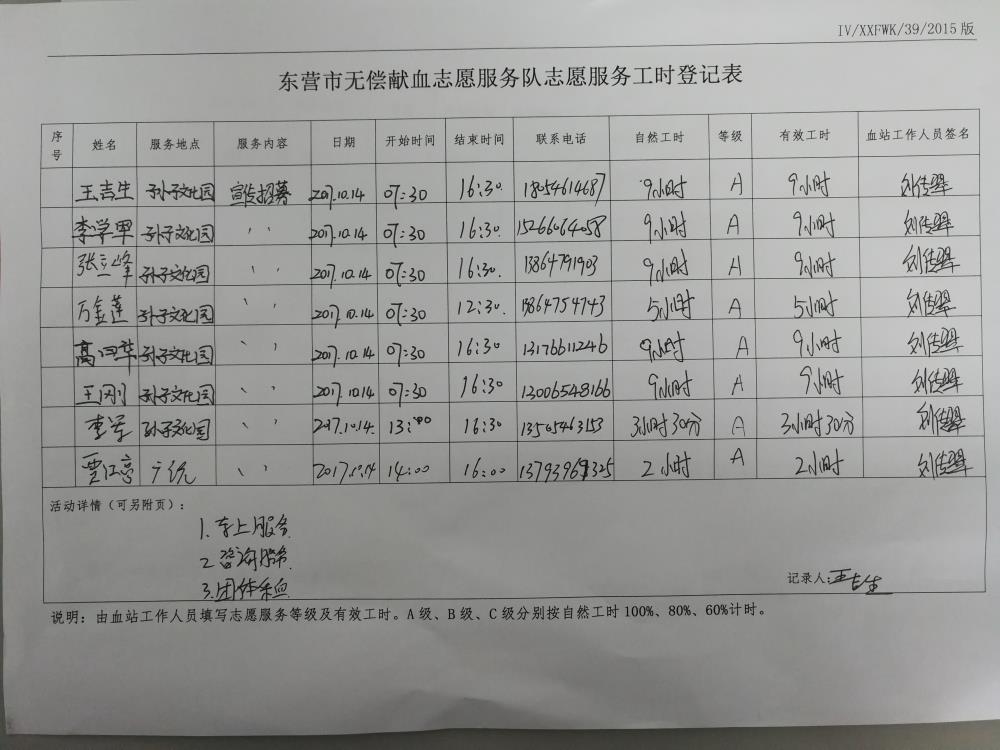 IV/XXFWK/39/2015版
东营市无偿献血志愿服务队志愿服务工时登记表
序号 姓名 服务地点 服务内容 日期 开始时间 结束时间 联系电话 自然工时 等级 有效工时 血站工作人员签名
王吉生 孙子文化园 宣传招募 2017.10.14 07:30 16:30 18054614687 9小时 A 9小时
李学军 孙子文化园 〃 2017.10.14 07:30 16:30. 15266064058 9小时 A 9小时
张立峰 孙子文化园 〃 2017.10.14 07:30 16:30. 9小时 A 9小时
万金莲 孙子文化园 〃 2017.10.14 07:30 12:30. 5小时 A 5小时
孙子文化园 〃 2017.10.14 07:30 16:30 13176611246 9小时 A 9小时
王刚 孙子文化园 〃 2017.10.14 07:30 16:30 13006548166 9小时 A 9小时
孙子文化园 〃 2017.10.14. 13:00 16:30 13505463153 3小时30分 A 3小时30分
〃 2017.10.14 14:00 16:00 2小时 A 2小时
活动详情（可另附页）:
1.车上服务
2.咨询服务
3.团体采血
记录人:王吉生
说明：由血站工作人员填写志愿服务等级及有效工时。A级、B级、C级分别按自然工时100%、80%、60%计时。